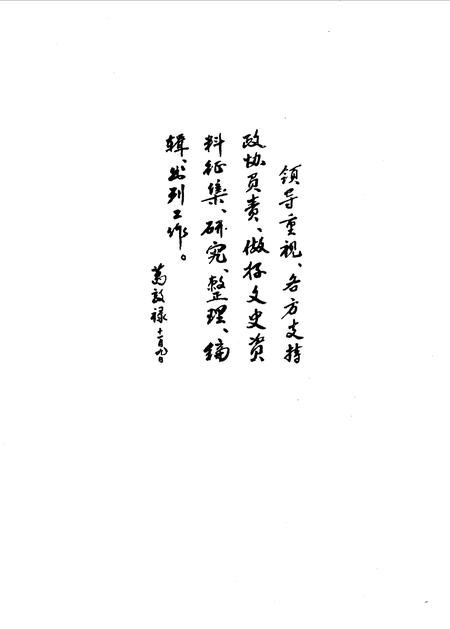 领导重视、各方支持
政协负责、做好文史资
料征集、研究、整理、编
辑、出刊工作。
葛敦禄 十一月九日